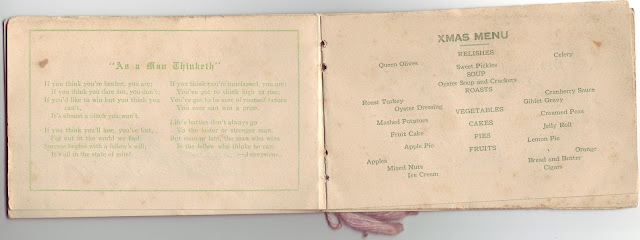 "As a Man Thinketh"
If you think you're beaten, you are;
If you think you dare not, you don't;
If you'd like to win but you think you
can't,
It's almost a cinch you won't.
If you think you'll lose, you've lost,
For out in the world we find
Success begins with a fellow's will;
It's all in the state of mind.
If you think you're outclassed, you are;
You've got to think high to rise;
You've got to be sure of yourself before
You ever can win a prize.
Life's battles don't always go
To the faster or stronger man,
But sooner or later, the man who wins
Is the fellow who thinks he can.
—Anonymous.
XMAS MENU
RELISHES
Queen Olives Celery
Sweet Pickles
SOUP
Oyster Soup and Crackers
ROASTS
Roast Turkey Cranberry Sauce
Oyster Dressing Giblet Gravy
VEGETABLES
Mashed Potatoes Creamed Peas
CAKES
Fruit Cake Jelly Roll
PIES
Apple Pie Lemon Pie
FRUITS
Apples Orange
Mixed Nuts Bread and Butter
Ice Cream Cigars